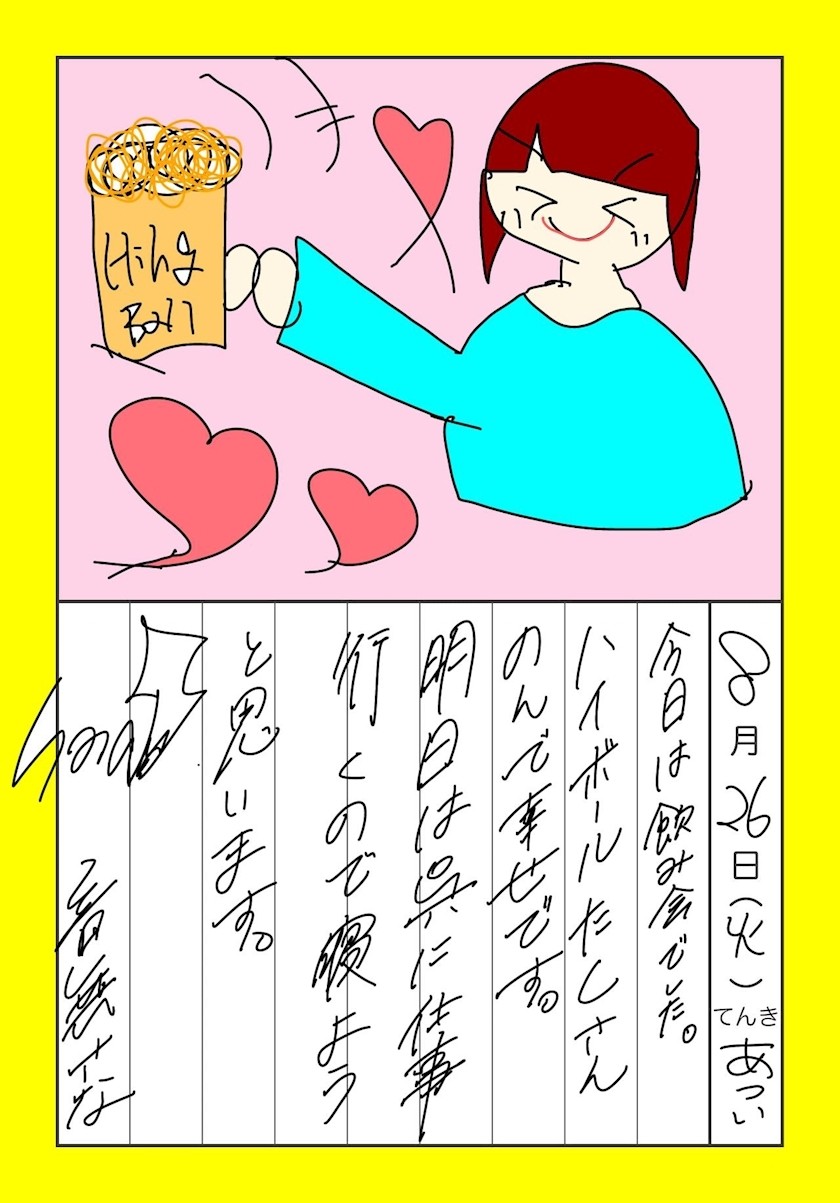 High
Ball
8月26日(火)てんきあつい
今日は飲み会でした。
ハイボールたくさん
のんで幸せです。
明日は呉に仕事
行くので寝よう
と思います。
音無さな